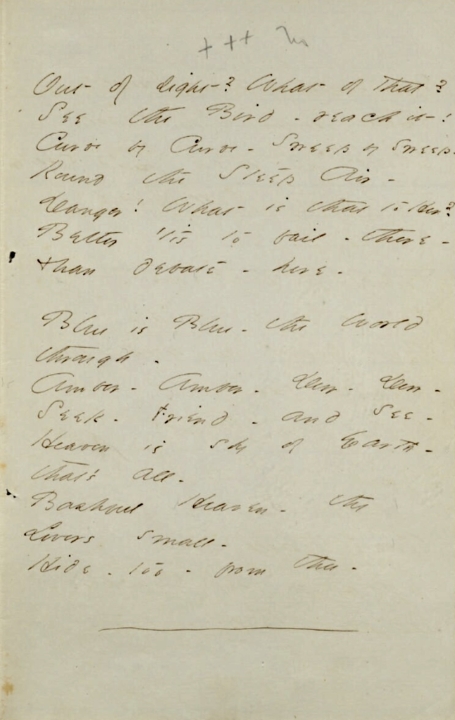 + ++
Out of sight? What of That?
See the Bird - reach it!
Curve by Curve - Sweep by Sweep
Round the Steep Air -
Danger! What is that to Her?
Better 'tis to fail - there -
Than debate - here -
Blue is Blue - the World
through -
Amber - Amber - Dew - Dew -
Seek - Friend - and See -
Heaven is shy of Earth -
that's all -
Bashful Heaven - thy
Lovers small -
Hide - too - from thee -